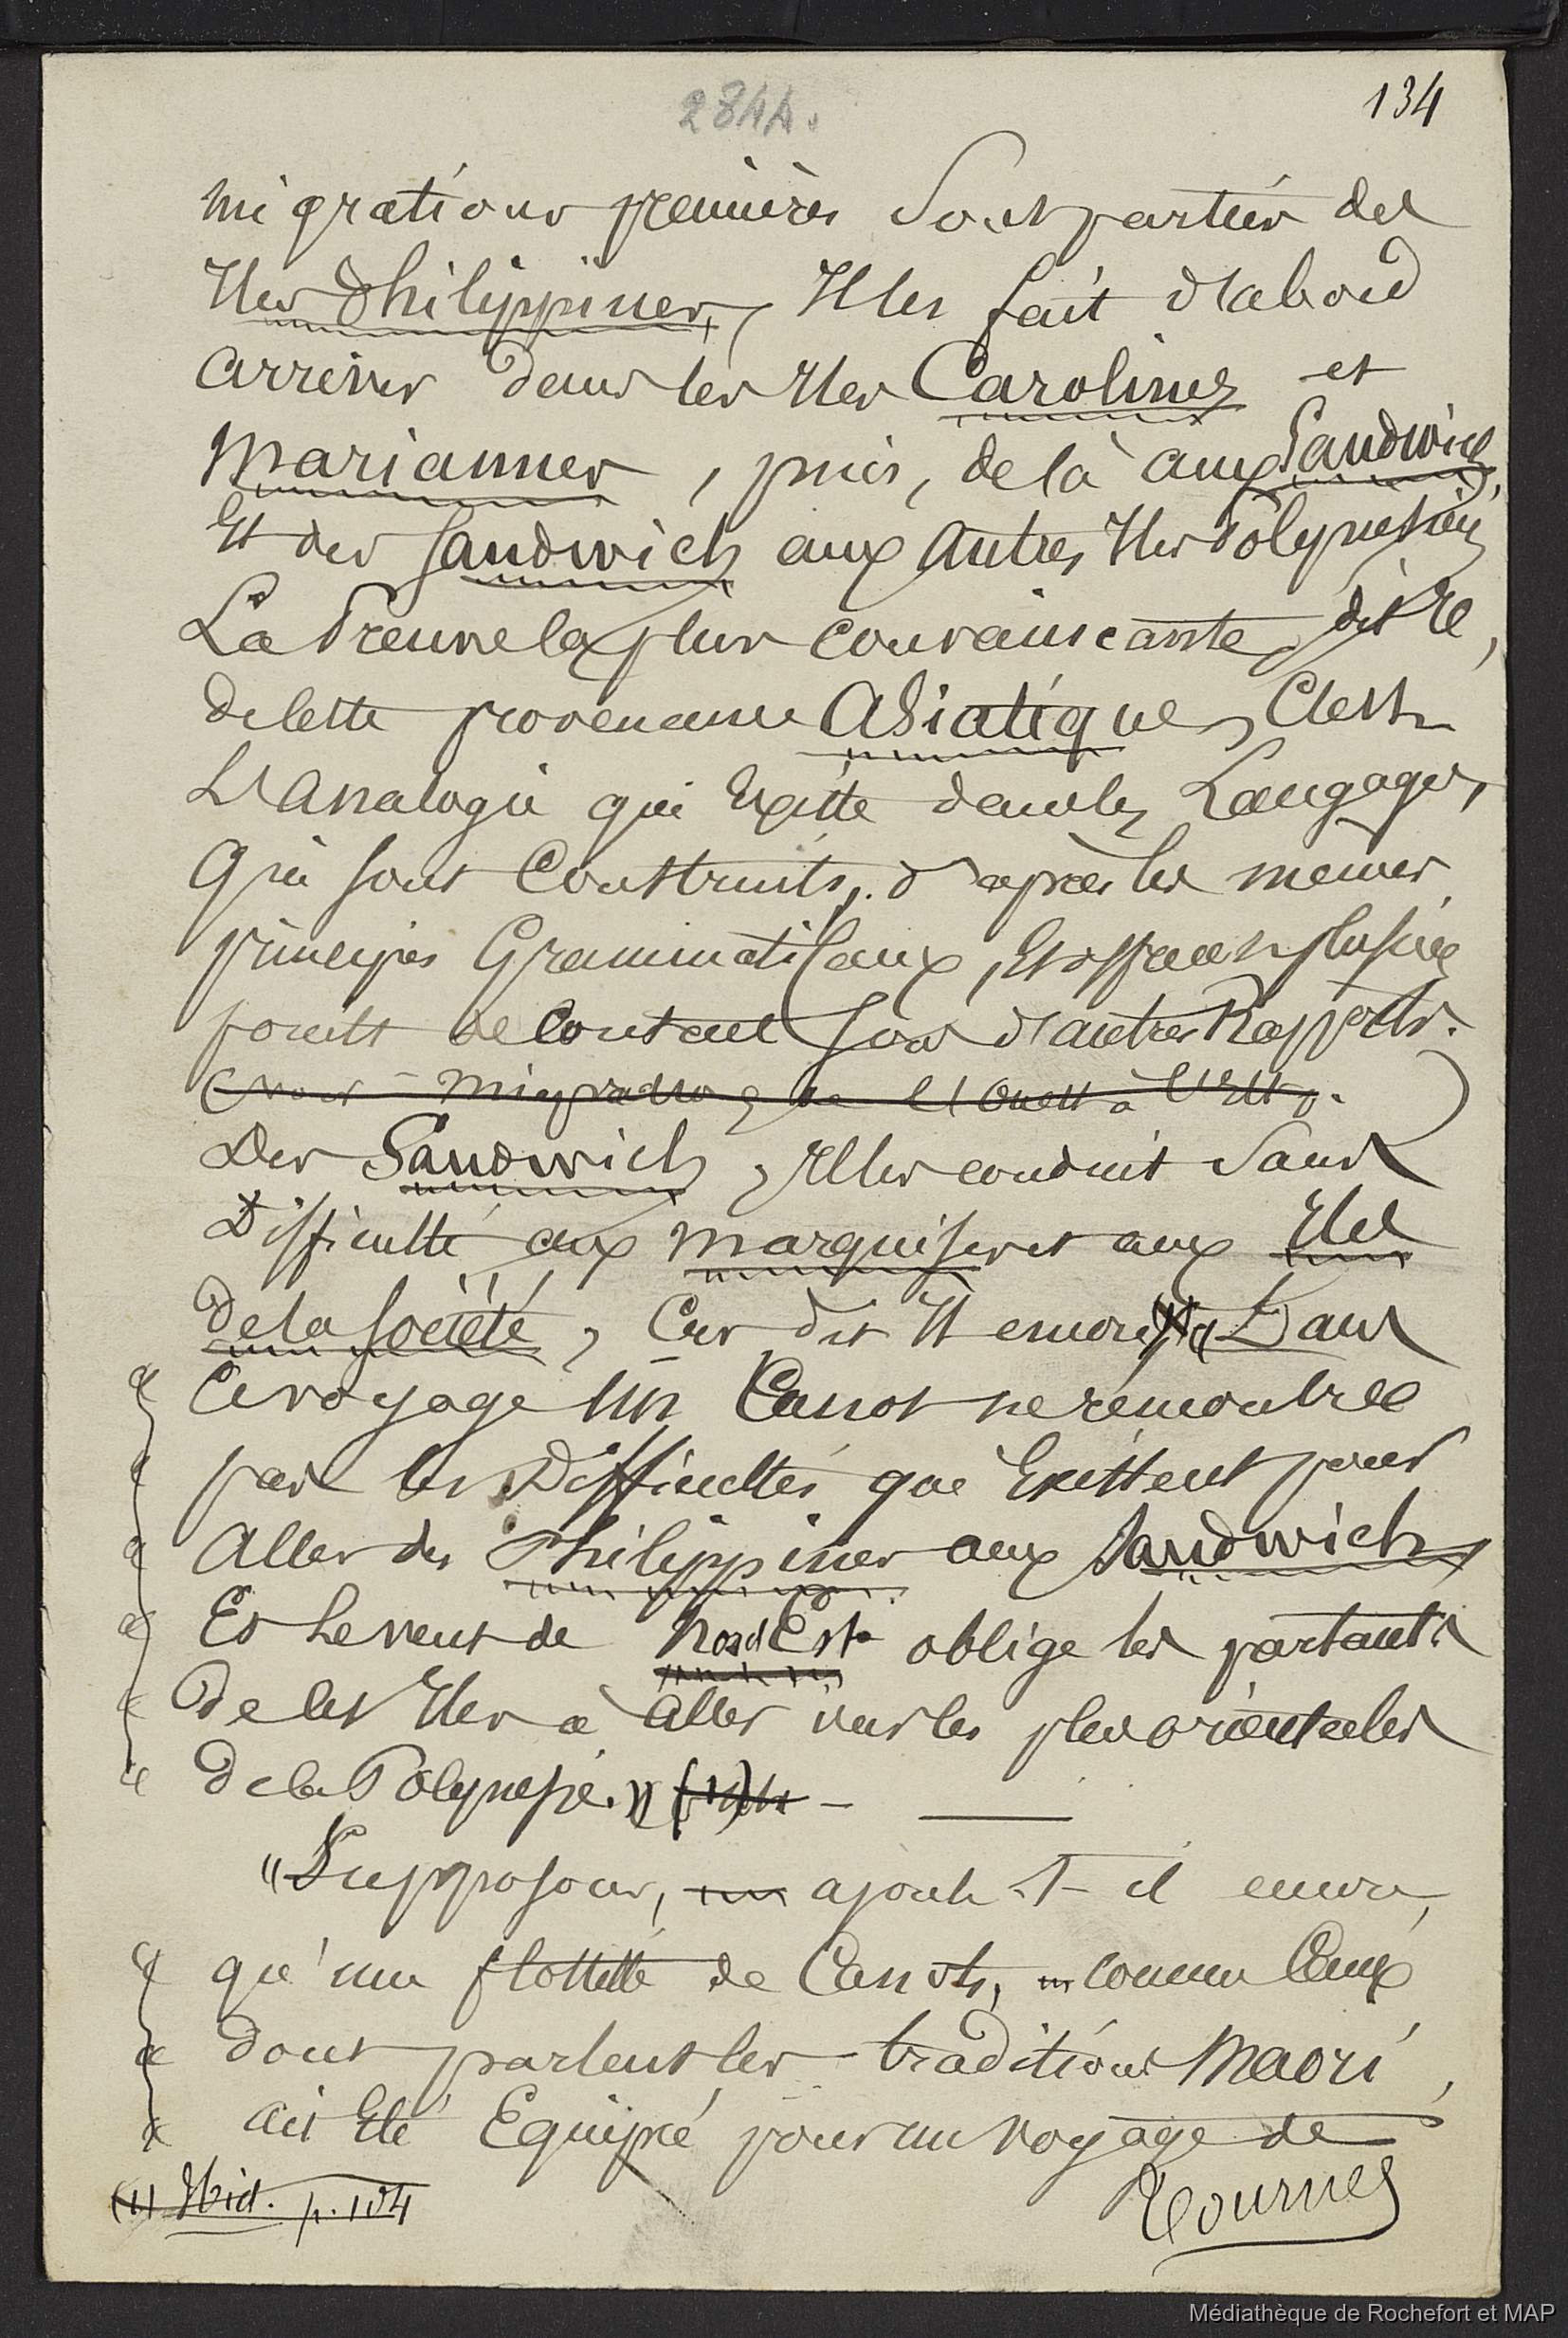 2844.
134
migrations premières sont parties des
Iles Philippines, Il les fait d'abord
arriver dans les Iles Carolines et
Mariannes, puis, de là aux Sandwich,
Et des Sandwich aux autres Iles Polynésien
La Preuve la plus convaincante, dit Il,
de Cette provenance Asiatique, C'est
L'Analogie qui Existe dans les Langages,
Qui sont Construits, d'après les mêmes
principes Grammaticaux, Et offrent plusieurs
points de Contact sous d'autres Rapports.
(Voir migrations de l'Ouest à l'Est.)
Des Sandwich, Il les conduit Sans
Difficulté aux Marquises et aux Iles
de la Société, Car dit Il encore « Dans
Ce voyage Un Canot ne rencontre
pas les Difficultés qui Existent pour
Aller des Philippines aux Sandwich
Et Le vent de Nord Est oblige les partants
De Ces Iles à Aller vers les plus orientales
De la Polynésie. » (1)
"Supposons, ajoute-t-il encore,
qu'une flottille de Canots, comme Ceux
dont parlent les traditions Maori,
ait Eté Equipée pour un voyage de
(1) Ibid. p. 104
Tournez
Médiathèque de Rochefort et MAP